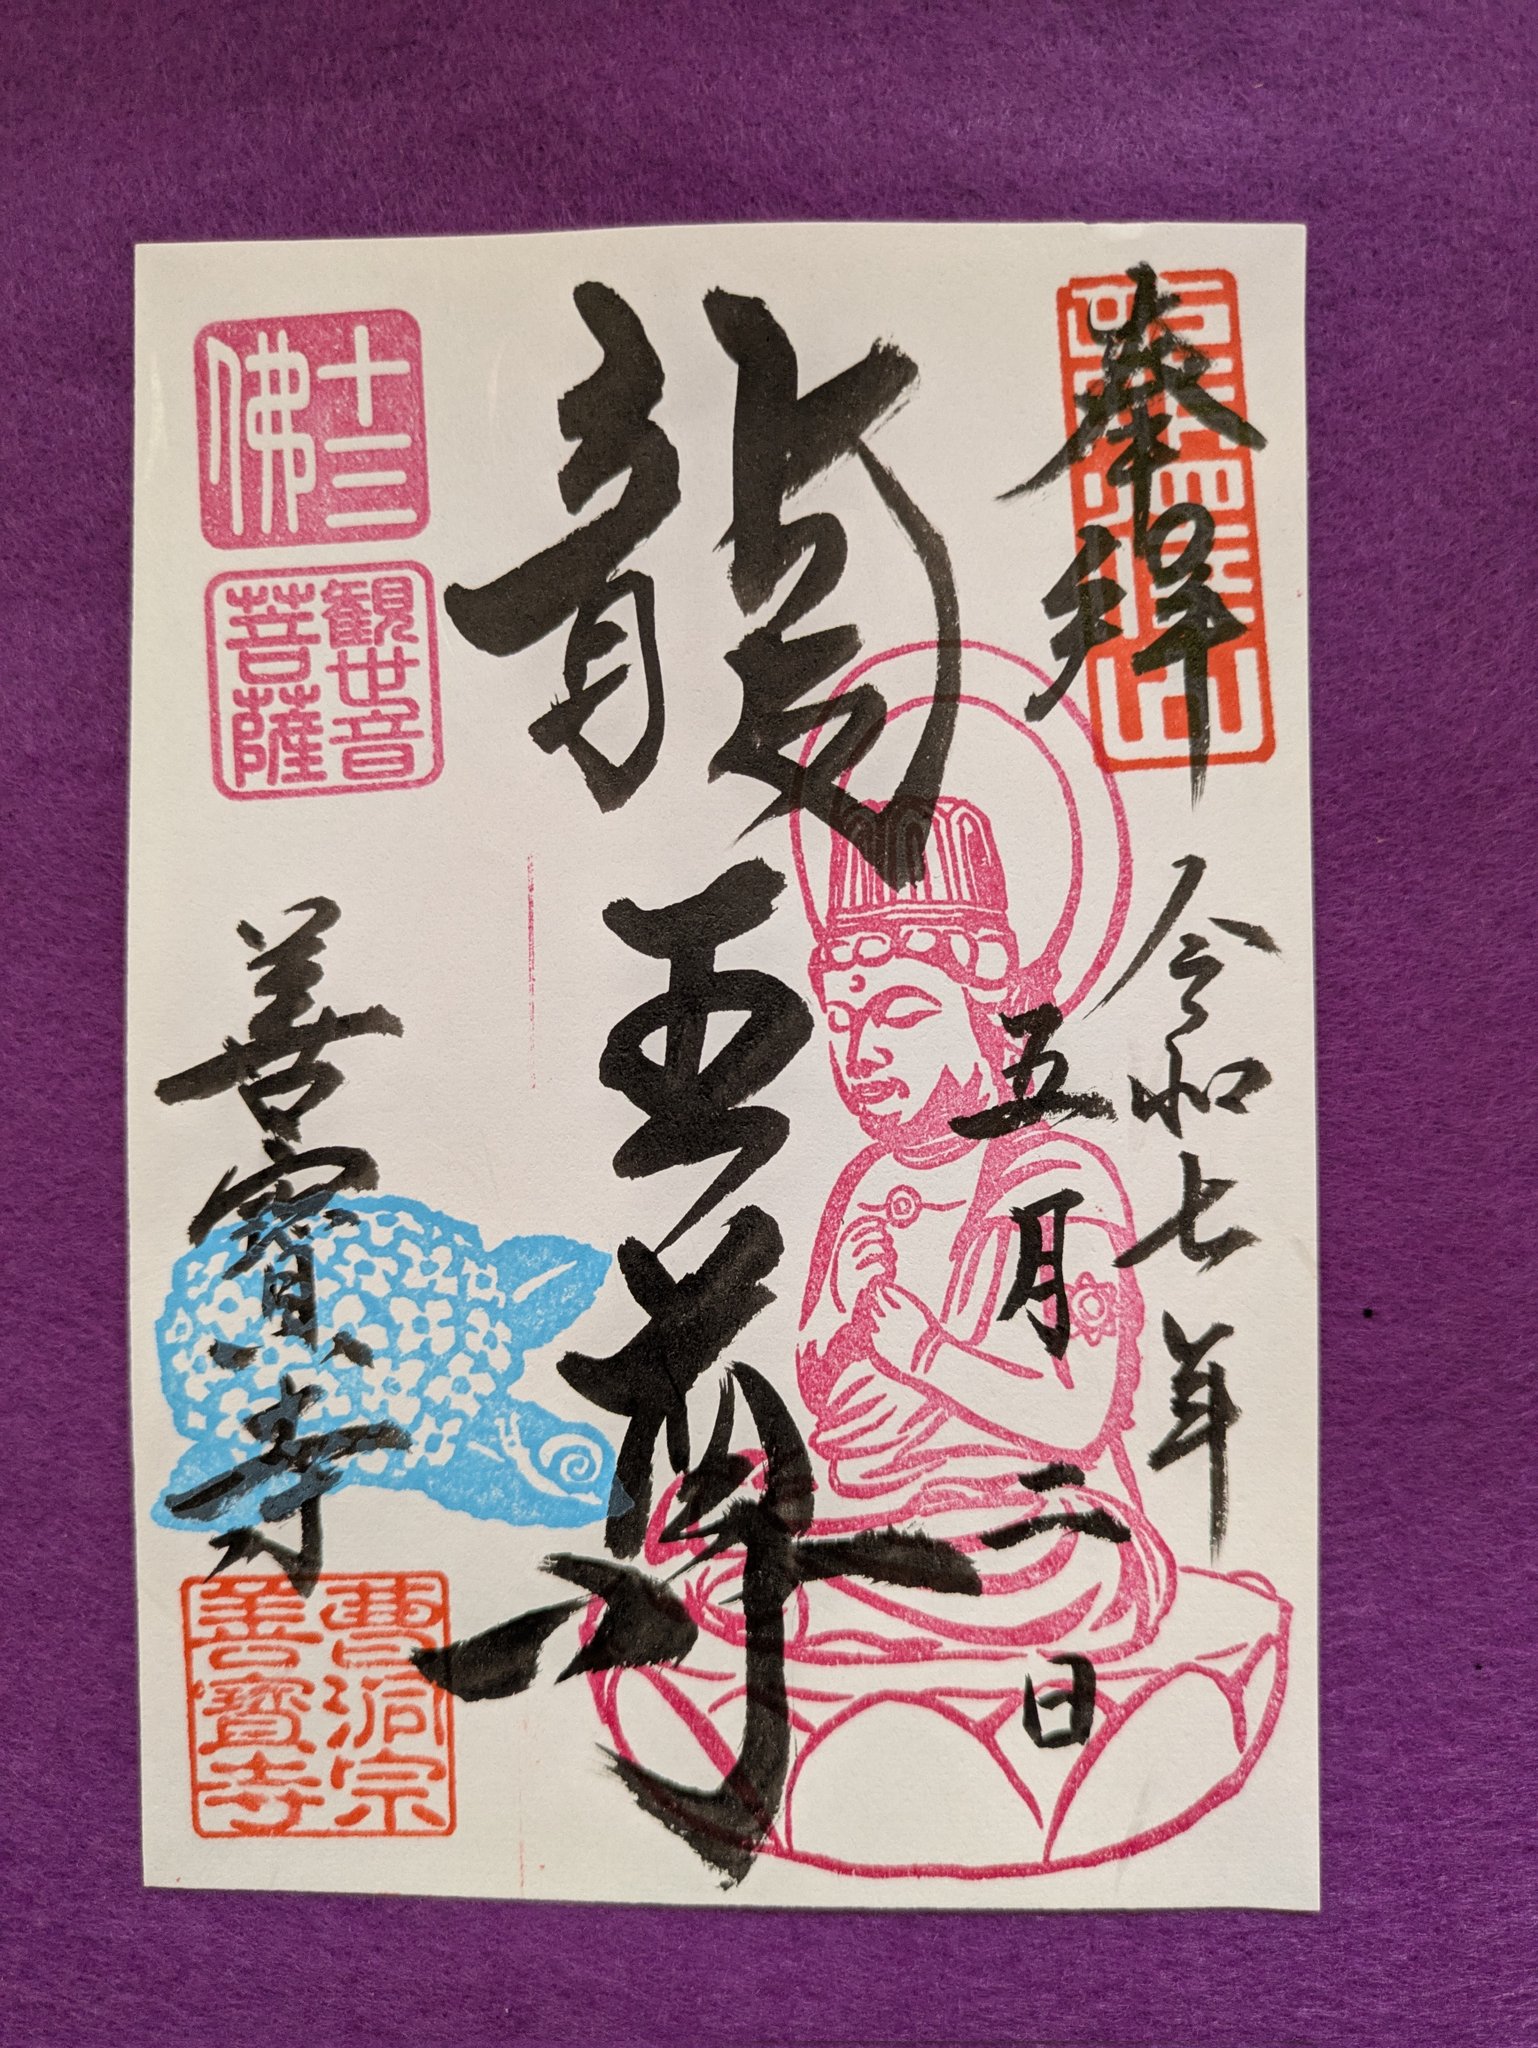 奉拝
令和七年
五月二日
龍王尊
十三
佛
観世音
菩薩
善寳寺
曹洞宗
善寳寺